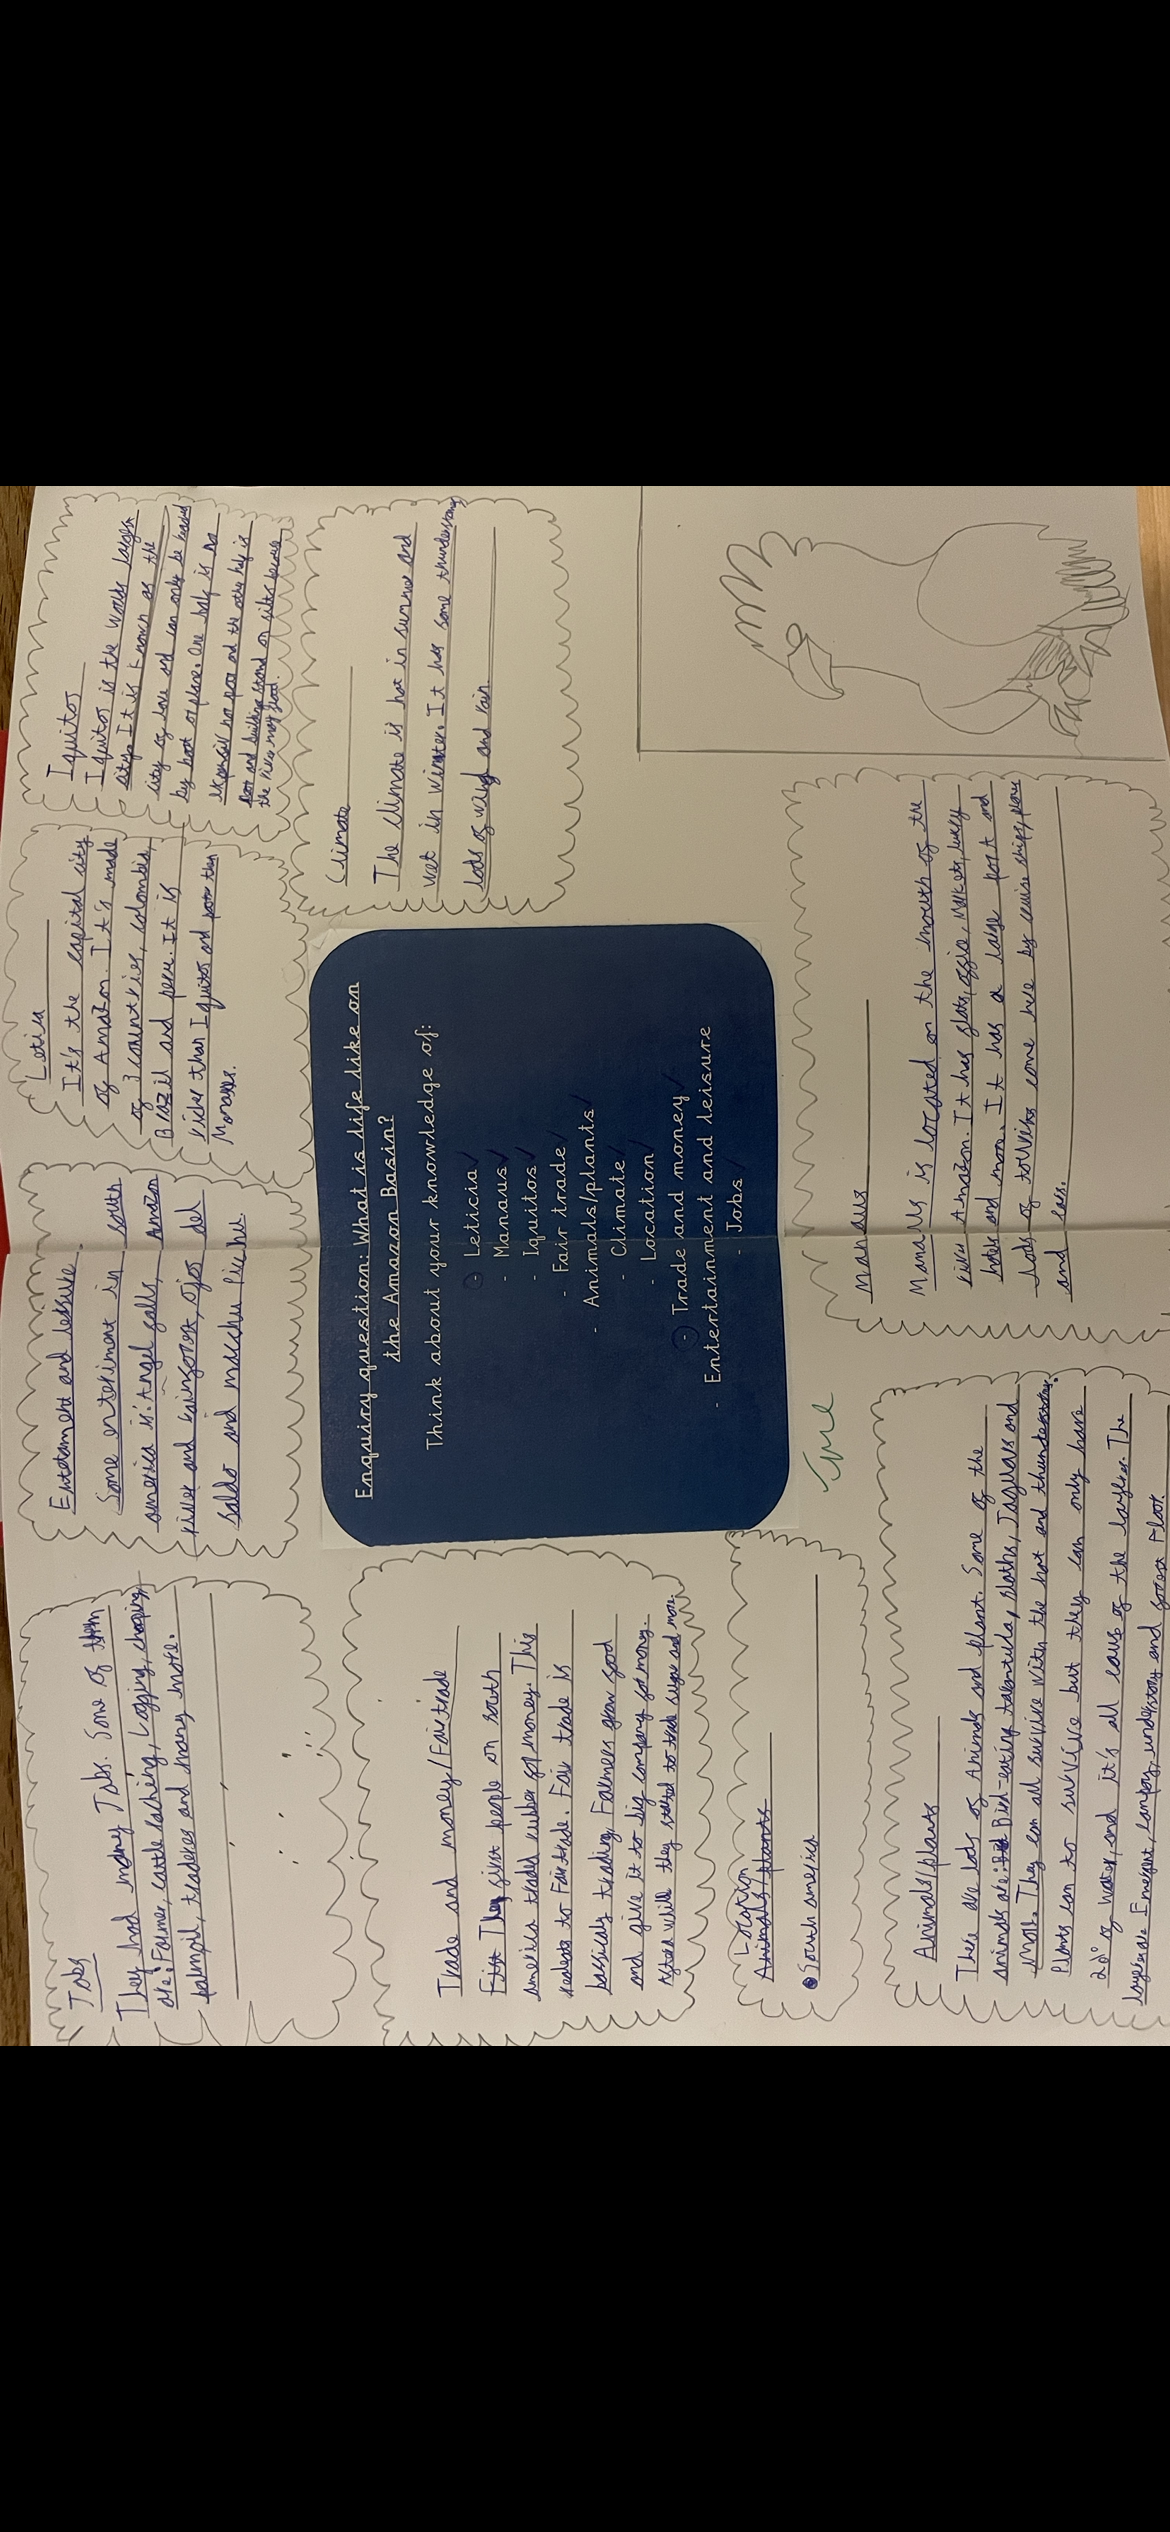 Jobs
They had many Jobs. Some of them
are: Farmer, cattle raching, Logging, choping,
palmoil, traders and many more.
Entetament and leisure.
Some enteriment in south
america is: Angel falls, Amazon
river and
salado and macchu Picchu.
Leticia
It's the capital city
of Amazon. It's made
of 3 countries, colombia,
Brazil and peru. It is
richer than Iquitos and poorer then
Manaus.
Iquitos
Iquitos is the worlds largest
city. It is known as the
city of love and can only be reached
by boat or plane. One half is
and the other half is
poor and buildings stand on stilts because
the river may flood.
Trade and money/Fair trade
First They first people on south
america traded rubber for money. This
leads to Fairtrade. Fair trade is
basicaly trading. Farmers grow food
and give it to big company for money.
After while they started to trade sugar and more.
Enquiry question: What is life like on
the Amazon Basin?
Think about your knowledge of:
- Leticia ✓
- Manaus ✓
- Iquitos ✓
- Fair trade ✓
- Animals/plants ✓
- Climate ✓
- Location ✓
- Trade and money ✓
- Entertainment and leisure
- Jobs ✓
Climate
The climate is hot in summer and
wet in winter. It has some thunderstorms
lots of wind and rain.
Location
Animals/plants
South america
Animals/plants
There are lots of Animals and plant. Some of the
animals are: Bird-eating tarantula, sloths, Jaguars and
more. They can all survive with the hot and thunderstorms.
Plants can to survive but they can only have
20° of water, and it's all caus of the layers. The
layers are Emergent, canopy, understory and forest Floor.
Manaus
Manaus is located on the mouth of the
river Amazon. It has flats, office, Markets, luxury
hotels and more. It has a large port and
lots of tourists come here by cruise ships, plane
and cars.